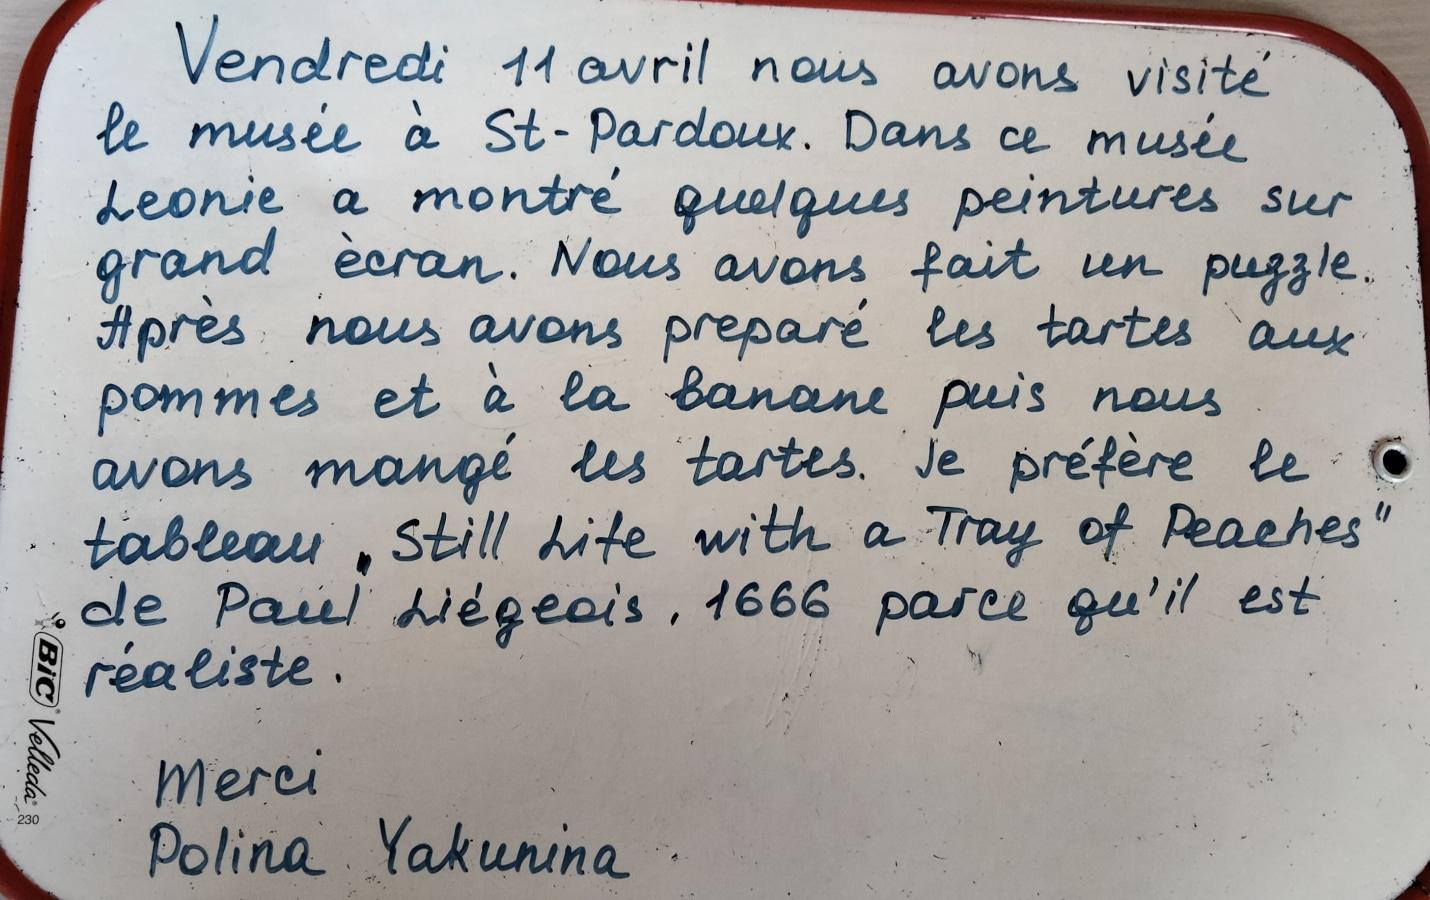 Vendredi 11 avril nous avons visité
le musée à St-Pardoux. Dans ce musée
Leonie a montré quelques peintures sur
grand ècran. Nous avons fait un puzzle.
Après nous avons preparé les tartes aux
pommes et à la banane puis nous
avons mangé les tartes. Je préfère le
tableau „Still Life with a Tray of Peaches"
de Paul Liégeois, 1666 parce qu'il est
réaliste.
Merci
Polina Yakunina
BIC Velleda®
230